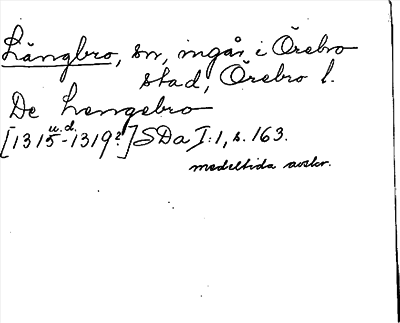 Längbro, sn, ingår i Örebro
stad, Örebro l.
De Lengebro
[1315 u.d. - 1319?] SDa I:1, s. 163.
medeltida avskr.